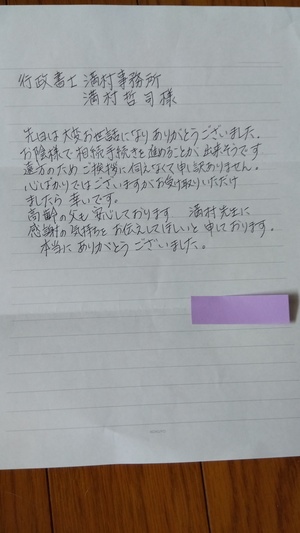 行政書士 溝村事務所
溝村哲司様
先日は大変お世話になりありがとうございました。
お陰様で相続手続きを進めることが出来そうです
遠方のためご挨拶に伺えなくて申し訳ありません。
心ばかりではございますがお受け取りいただけ
ましたら 幸いです。
高齢の父も安心しております 溝村先生に
感謝の気持ちを お伝えしてほしいと 申しております。
本当に ありがとう ございました。